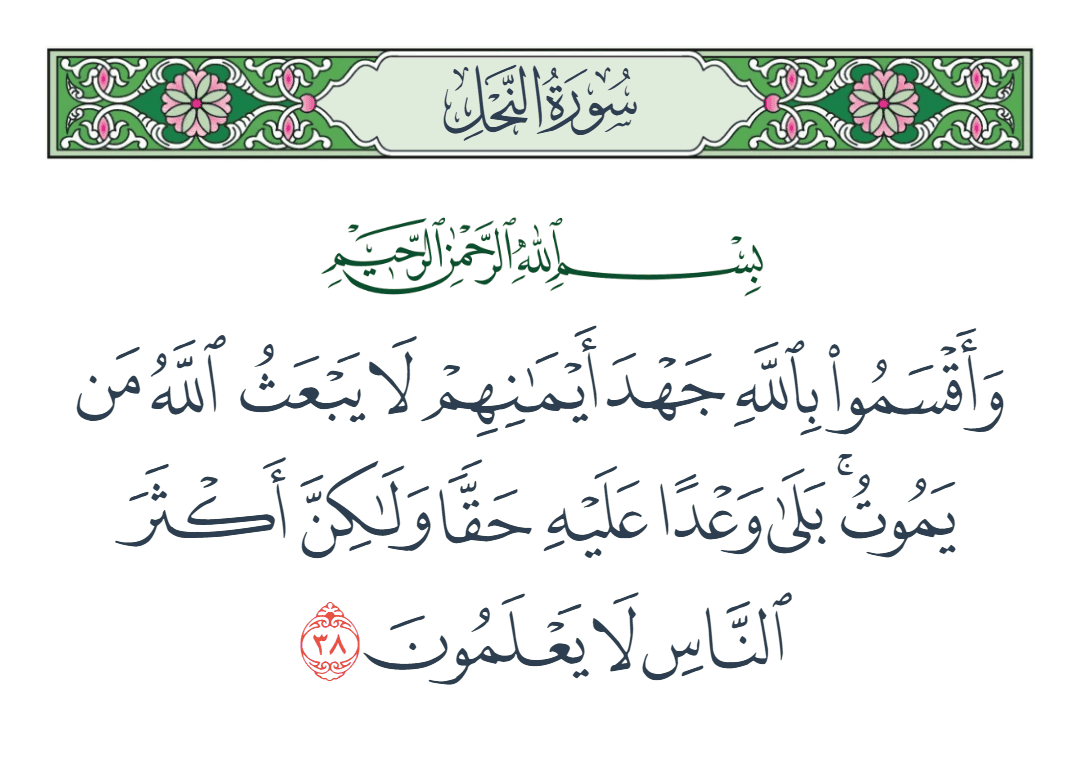 سُورَةُ النَّحْلِ
بِسْمِ ٱللَّهِ ٱلرَّحْمَٰنِ ٱلرَّحِيمِ
وَأَقْسَمُوا۟ بِٱللَّهِ جَهْدَ أَيْمَـٰنِهِمْ لَا يَبْعَثُ ٱللَّهُ مَن
يَمُوتُ ۚ بَلَىٰ وَعْدًا عَلَيْهِ حَقًّا وَلَـٰكِنَّ أَكْثَرَ
ٱلنَّاسِ لَا يَعْلَمُونَ ٣٨